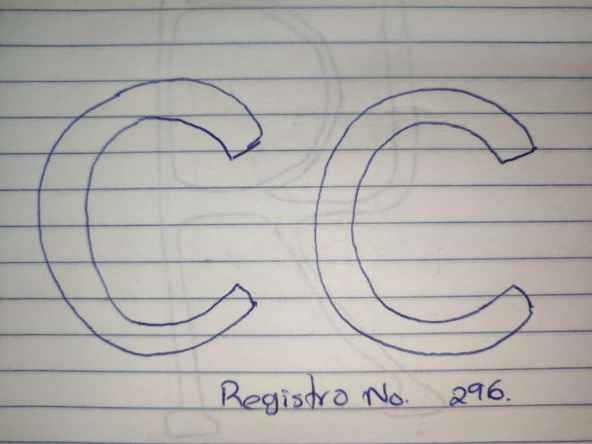 CC
Registro No. 296.